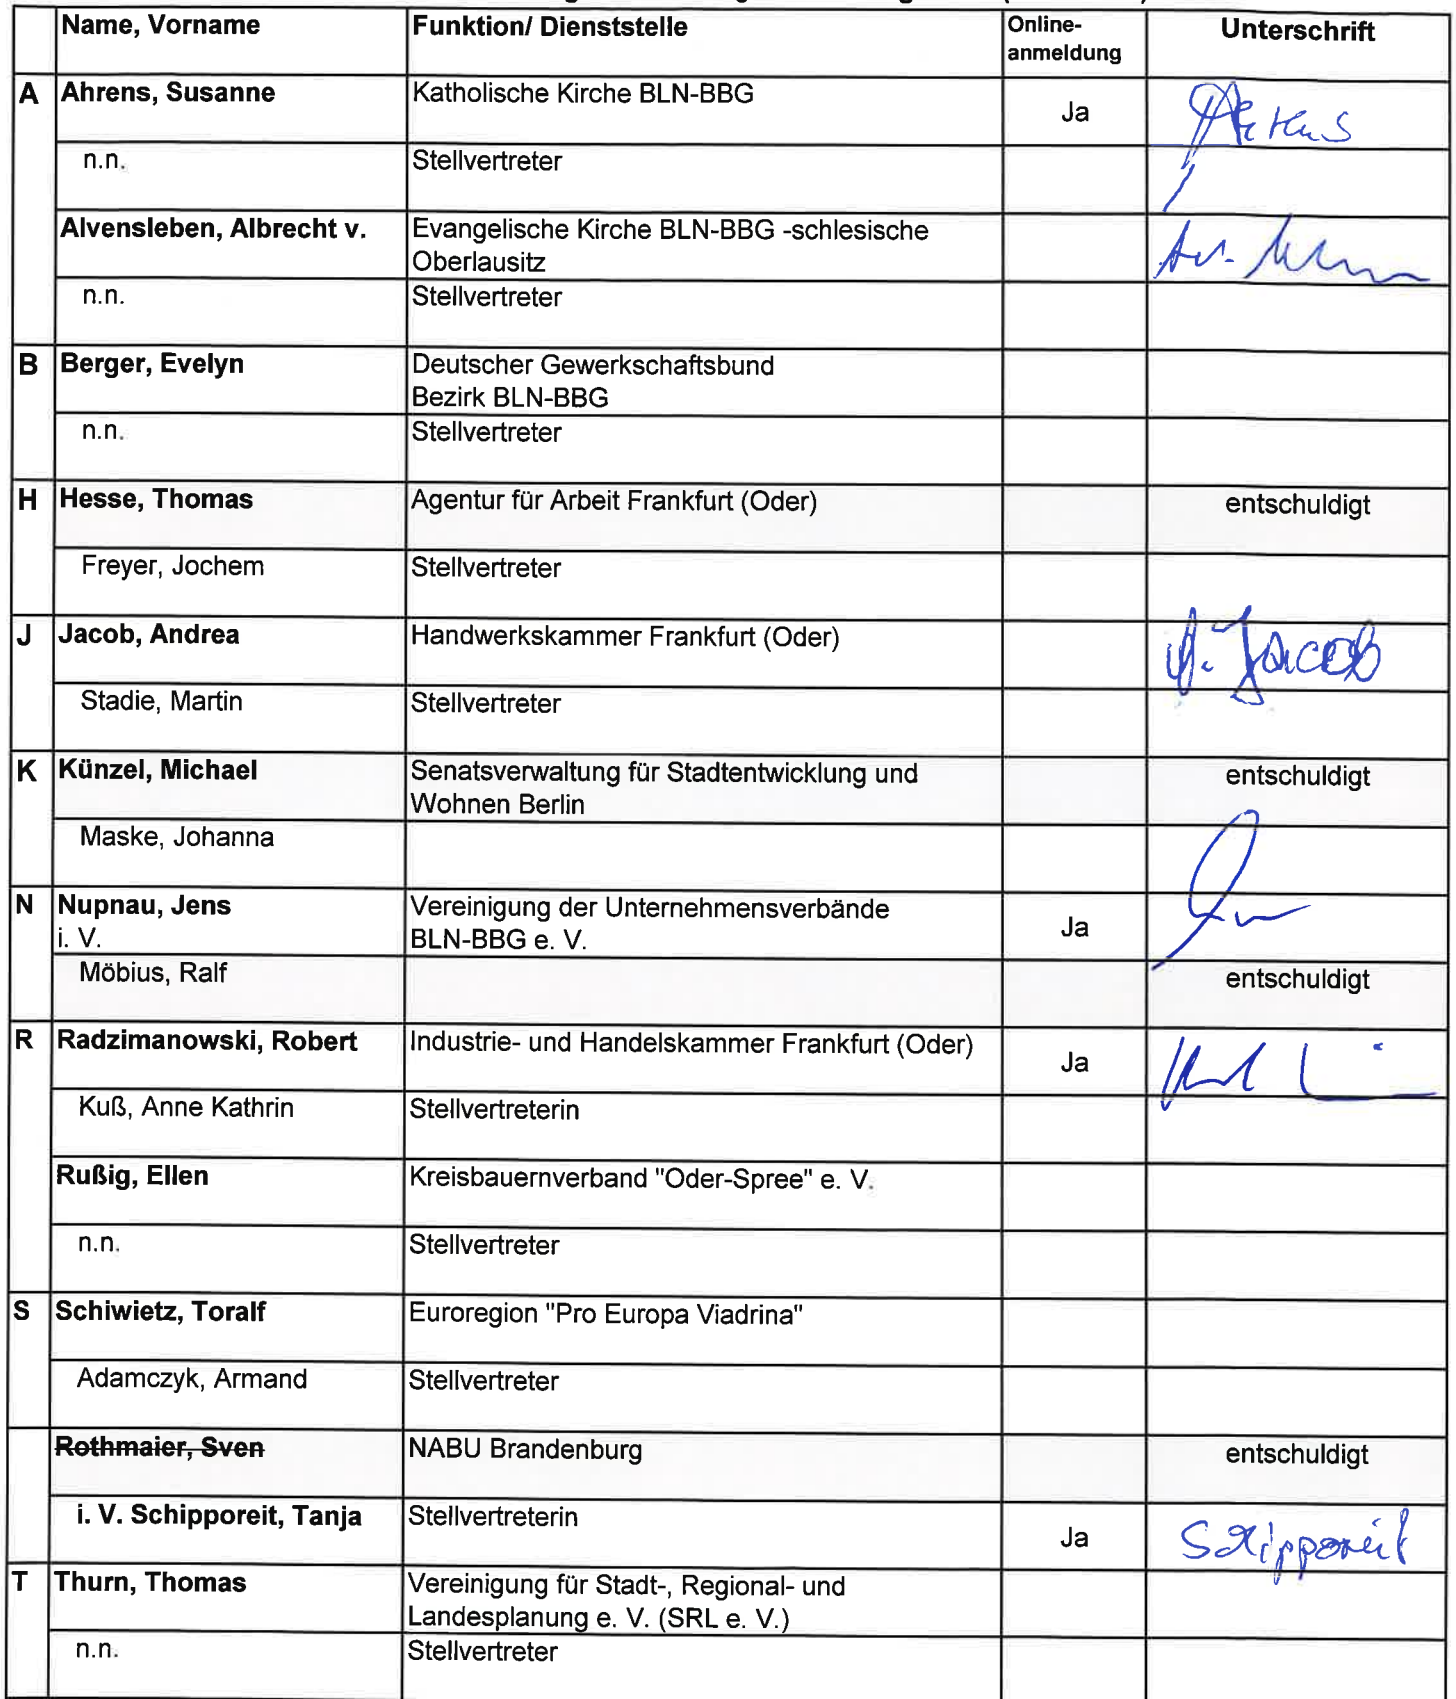 Name, Vorname Funktion/ Dienststelle Online-anmeldung Unterschrift
A Ahrens, Susanne Katholische Kirche BLN-BBG Ja
n.n. Stellvertreter
Alvensleben, Albrecht v. Evangelische Kirche BLN-BBG -schlesische
Oberlausitz
n.n. Stellvertreter
B Berger, Evelyn Deutscher Gewerkschaftsbund
Bezirk BLN-BBG
n.n. Stellvertreter
H Hesse, Thomas Agentur für Arbeit Frankfurt (Oder) entschuldigt
Freyer, Jochem Stellvertreter
J Jacob, Andrea Handwerkskammer Frankfurt (Oder) A. Jacob
Stadie, Martin Stellvertreter
K Künzel, Michael Senatsverwaltung für Stadtentwicklung und entschuldigt
Wohnen Berlin
Maske, Johanna
N Nupnau, Jens Vereinigung der Unternehmensverbände
i. V. BLN-BBG e. V. Ja
Möbius, Ralf entschuldigt
R Radzimanowski, Robert Industrie- und Handelskammer Frankfurt (Oder) Ja
Kuß, Anne Kathrin Stellvertreterin
Rußig, Ellen Kreisbauernverband "Oder-Spree" e. V.
n.n. Stellvertreter
S Schiwietz, Toralf Euroregion "Pro Europa Viadrina"
Adamczyk, Armand Stellvertreter
Rothmaier, Sven NABU Brandenburg entschuldigt
i. V. Schipporeit, Tanja Stellvertreterin Ja Schipporeit
T Thurn, Thomas Vereinigung für Stadt-, Regional- und
Landesplanung e. V. (SRL e. V.)
n.n. Stellvertreter